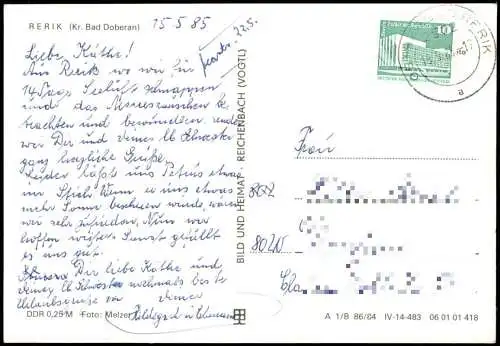 RERIK (Kr. Bad Doberan)
15.5.85
Liebe Käthe!
Aus Rerik wo wir für
14 Tage Seeluft schnappen
und das Meeresrauschen be
trachten und bewundern, senden
wir Dir und deiner lb Schwester
ganz herzliche Grüße.
Leider läßt uns Petrus etwas
im Stich. Wenn er uns etwas
mehr Sonne bescheren würde, wären
wir sehr zufrieden. Nun wir
hoffen weiter. Sonst gefällt
es uns gut.
Dir liebe Käthe und
deiner lb Schwester nochmals beste
Urlaubsgrüße von deiner
Hildegard u.
DDR 0,25 M · Foto: Melzer
BILD UND HEIMAT · REICHENBACH (VOGTL)
10
RERIK
a
Frau
8020
A 1/B 86/84 IV-14-483 06 01 01 418